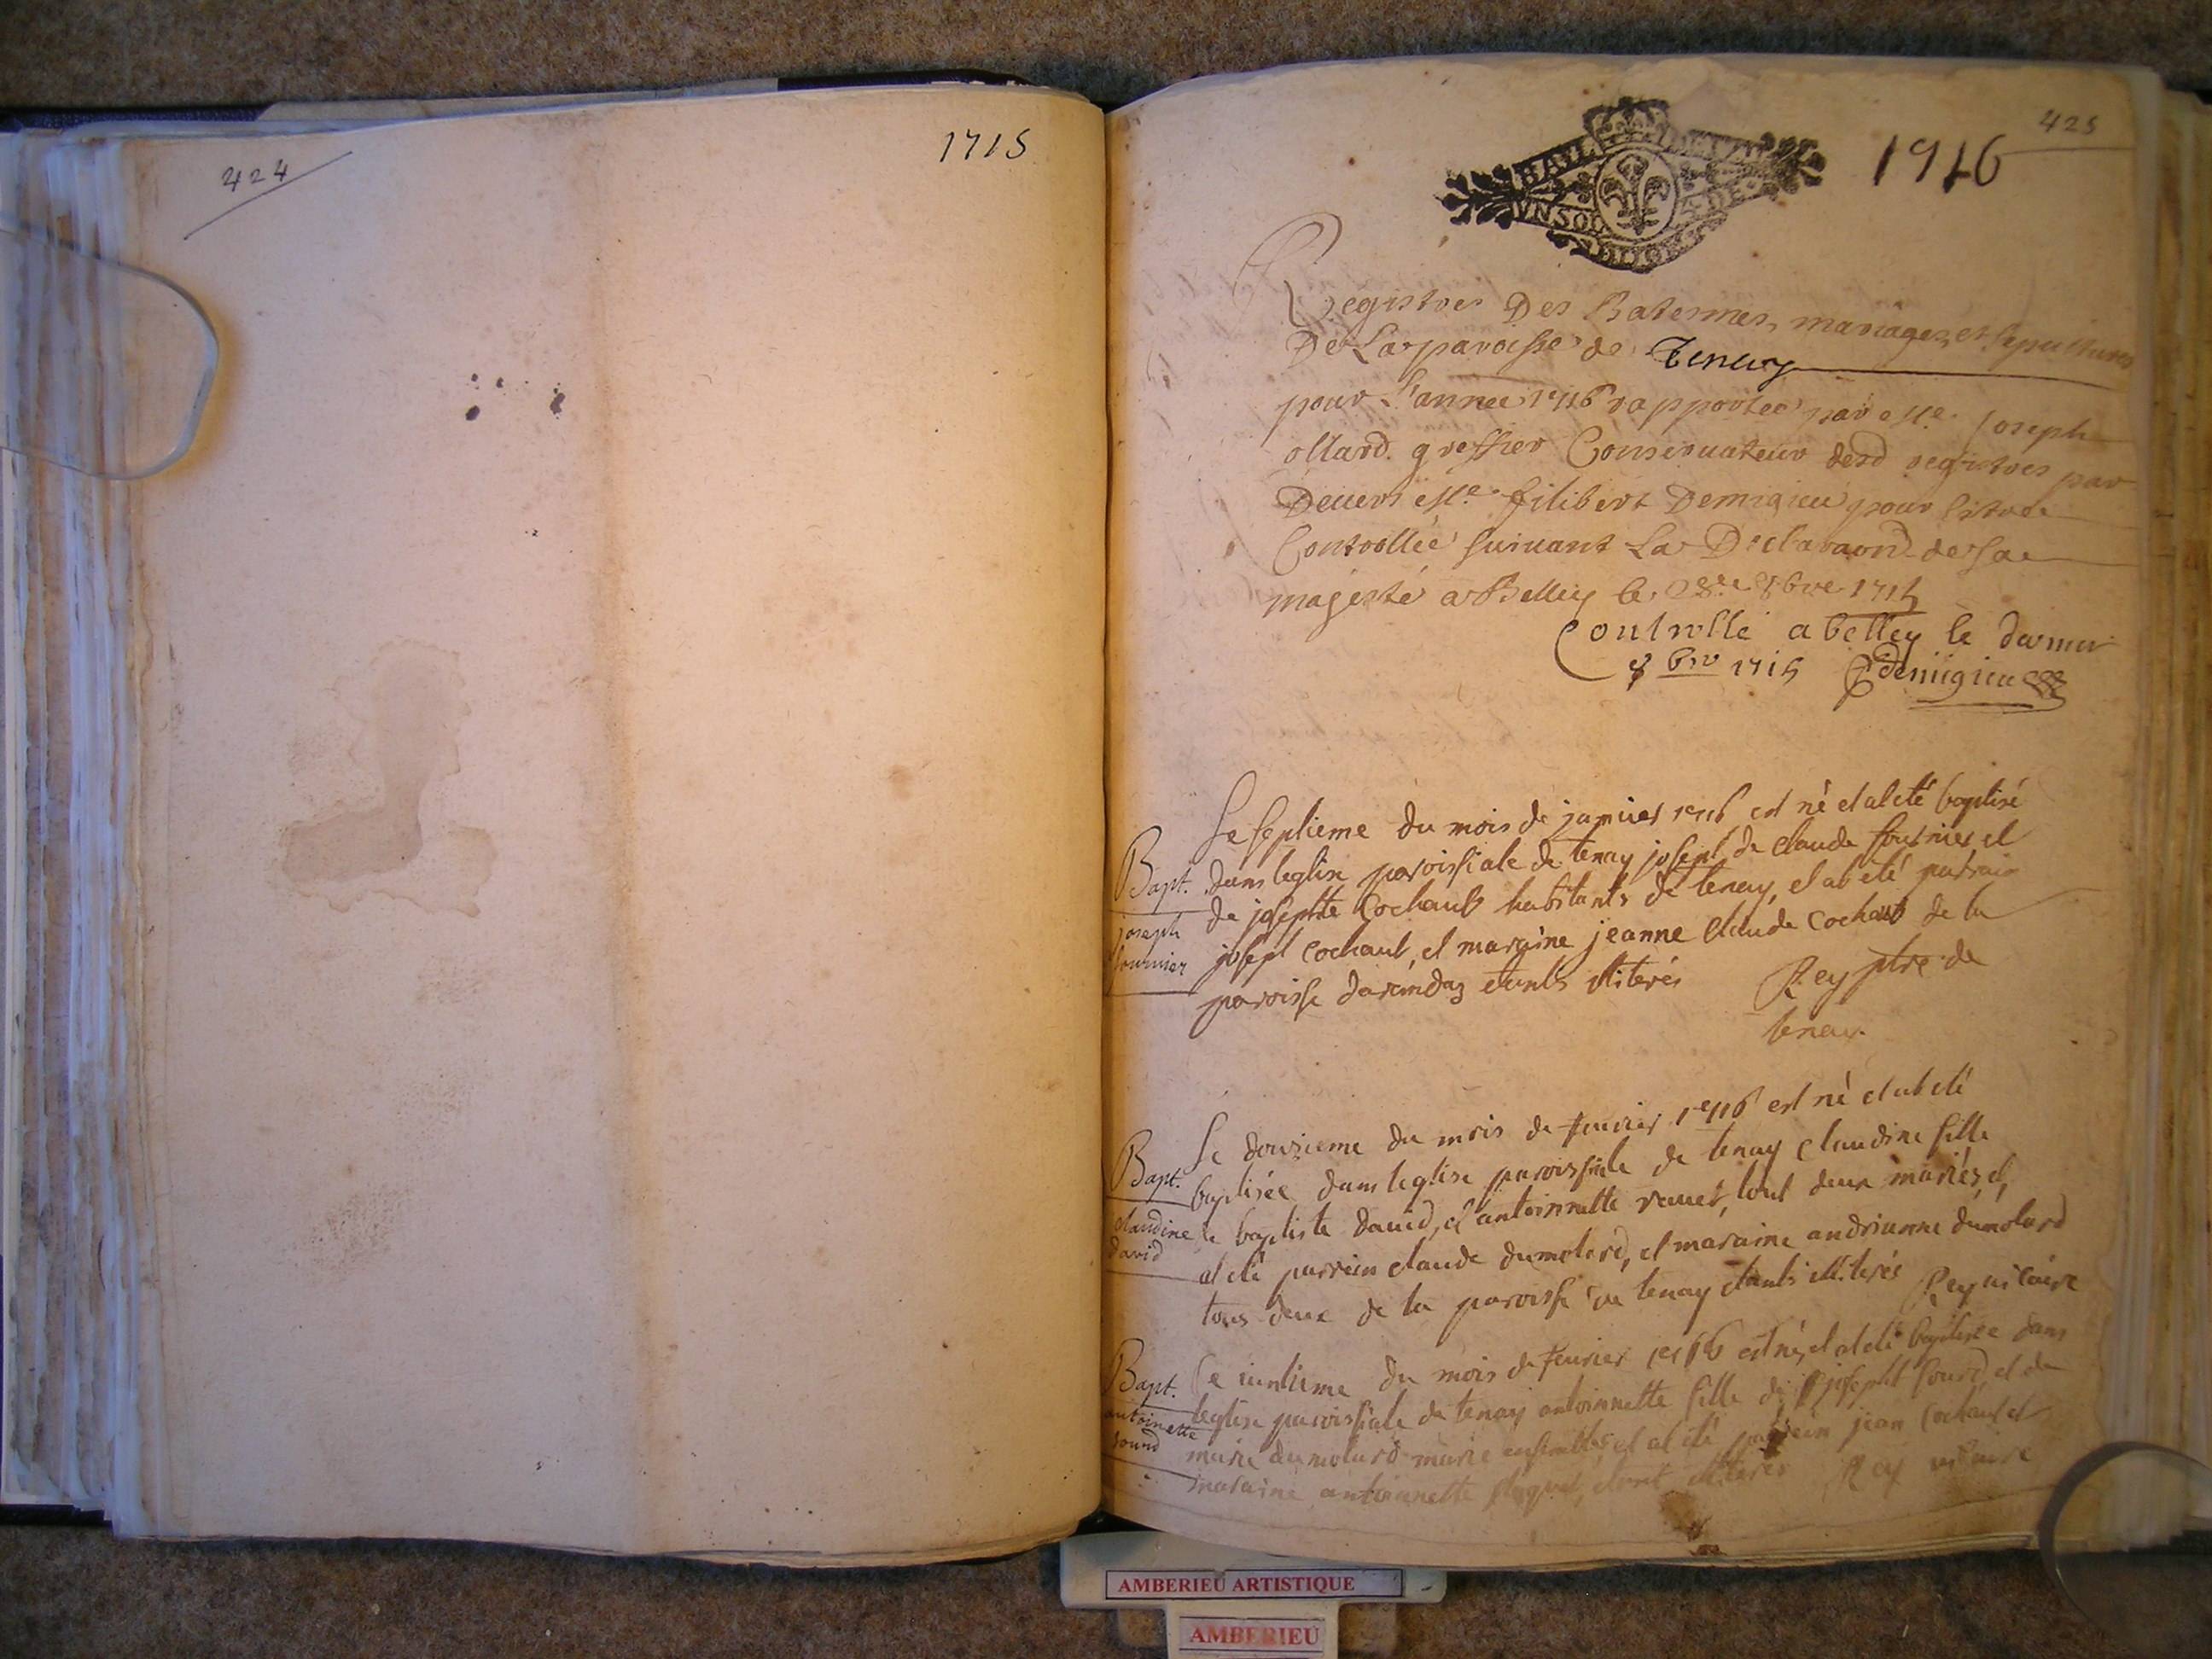 424
1715
425
1716
UN SOL
Registres Des Batesmes, mariages, et sepultures
De La paroisse de Tenay
pour L'année 1716 rapportee par Me. Joseph
ollard greffier Conservateur desd registres par
Devers Me. filibert Demigieu pour Estre
Controllée suivant La Declaraond de sa
majesté a Belley le 8bre 1715
Controllé a belley le
8bre 1715 Demigieu
Le septieme du mois de janvier 1716 est né et at eté baptisé
Bapt. dans leglise paroissiale de tenay joseph de claude fournier et
joseph fournier
de josephte Cochaut habitants de tenay, et at eté parrain
joseph cochaut, et maraine jeanne claude cochaut de la
paroisse darandaz etants illiterés Rey ptre de
tenay.
Le douzieme du mois de fevrier 1716 est né et at eté
Bapt. baptisée dans leglise paroissiale de tenay claudine fille
claudine david
de baptiste david, et antoinnette ravet, tout deux mariés, et,
at eté parrein claude dumolard, et maraine andrianne dumolard
tous deux de la paroisse de tenay etants illiterés Rey vicaire
Bapt. Le vintieme du mois de fevrier 1716 est né, et at eté baptisée dans
antoinette
leglise paroissiale de tenay antoinnette fille de josepht et de
marie dumolard marie ensembles, et at eté parrein jean cochaut et
maraine antoinnette etant illiterés Rey vicaire
AMBERIEU ARTISTIQUE
AMBERIEU